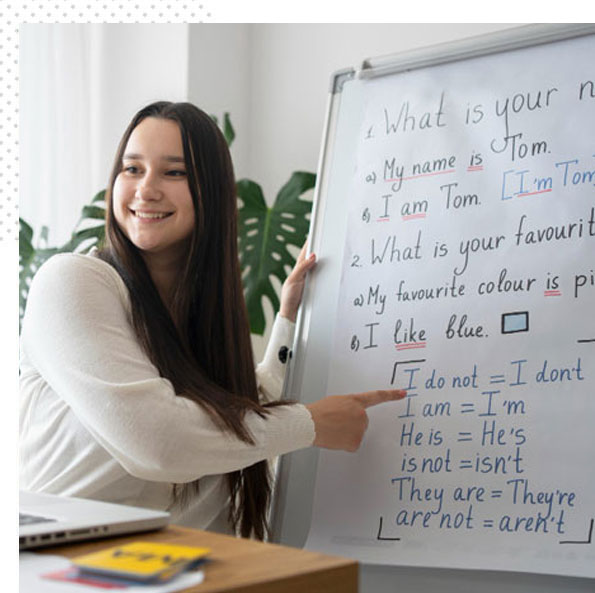 1. What is your n
a) My name is Tom.
b) I am Tom. [I'm Tom
2. What is your favourit
a) My favourite colour is pi
b) I like blue.
I do not = I don't
I am = I'm
He is = He's
is not = isn't
They are = They're
are not = aren't